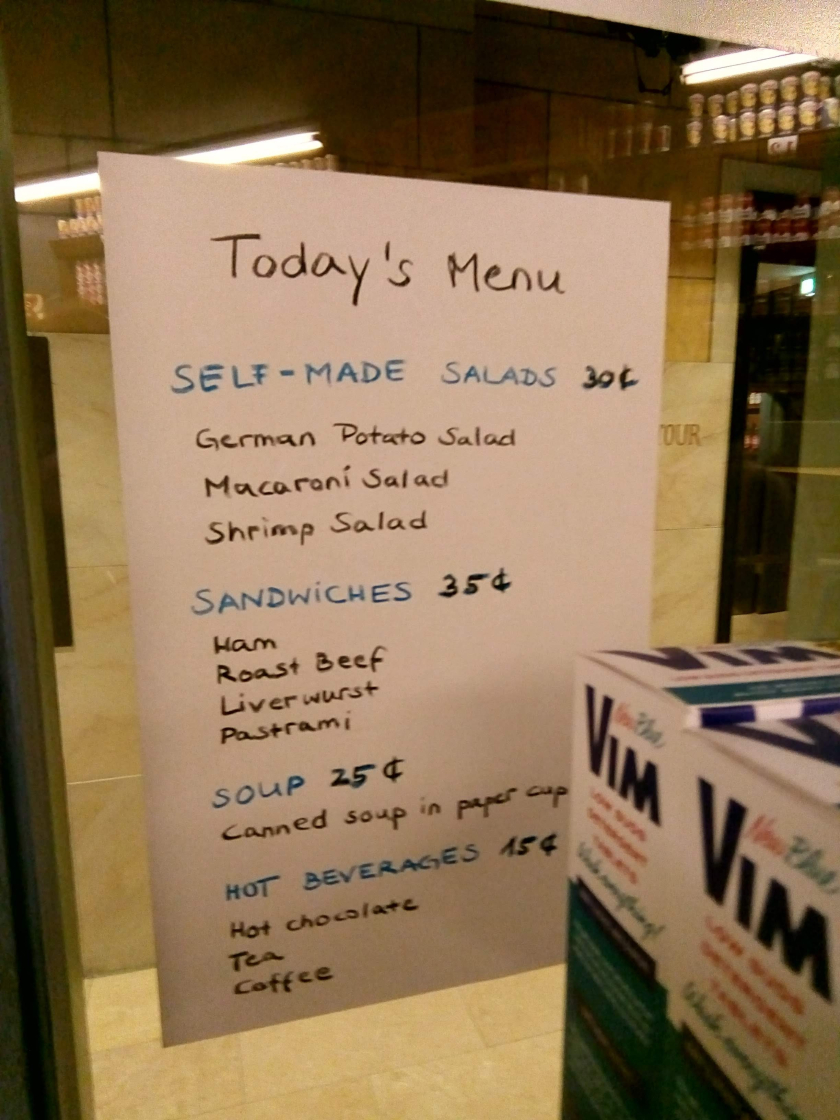 Today's Menu
SELF-MADE SALADS 30¢
German Potato Salad
Macaroni Salad
Shrimp Salad
SANDWiCHES 35¢
Ham
Roast Beef
Liverwurst
Pastrami
SOUP 25¢
Canned soup in paper cup
HOT BEVERAGES 15¢
Hot chocolate
Tea
Coffee
YOUR
VIM
New Blue
VIM
LOW SUDS
DETERGENT
TABLETS
Whitens everything!
New Blue
VIM
LOW SUDS
DETERGENT
TABLETS